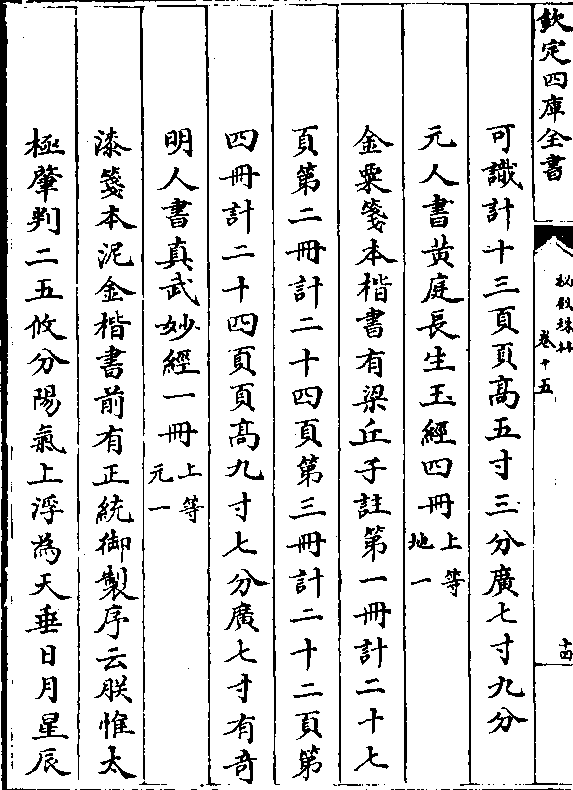 欽定四庫全書
秘殿珠林
卷十五
十四
可識計十三頁頁高五寸三分廣七寸九分
元人書黄庭長生玉經四冊上等地一
金粟箋本楷書有梁丘子註第一冊計二十七
頁第二冊計二十四頁第三冊計二十二頁第
四冊計二十四頁頁高九寸七分廣七寸有奇
明人書真武妙經一冊上等元一
漆箋本泥金楷書前有正統御製序云朕惟太
極肇判二五攸分陽氣上浮為天垂日月星辰